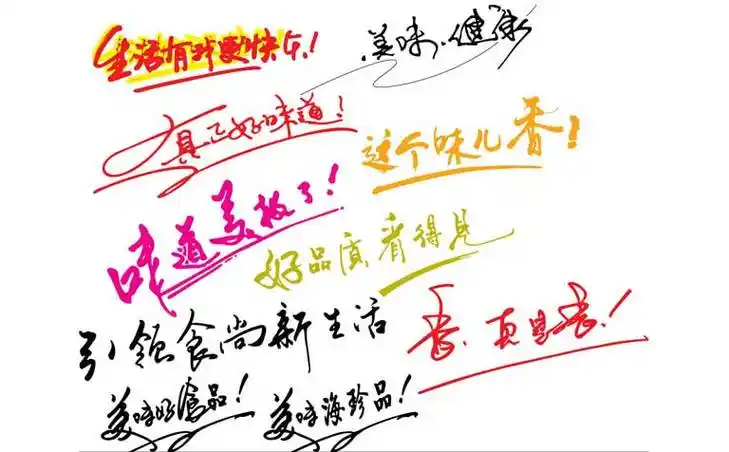 生活有我更快乐!
美味,健康
真正好味道!
这个味儿香!
味道美极了!
好品质看得见
引领食尚新生活
香,真是香!
美味好食品!
美味海珍品!